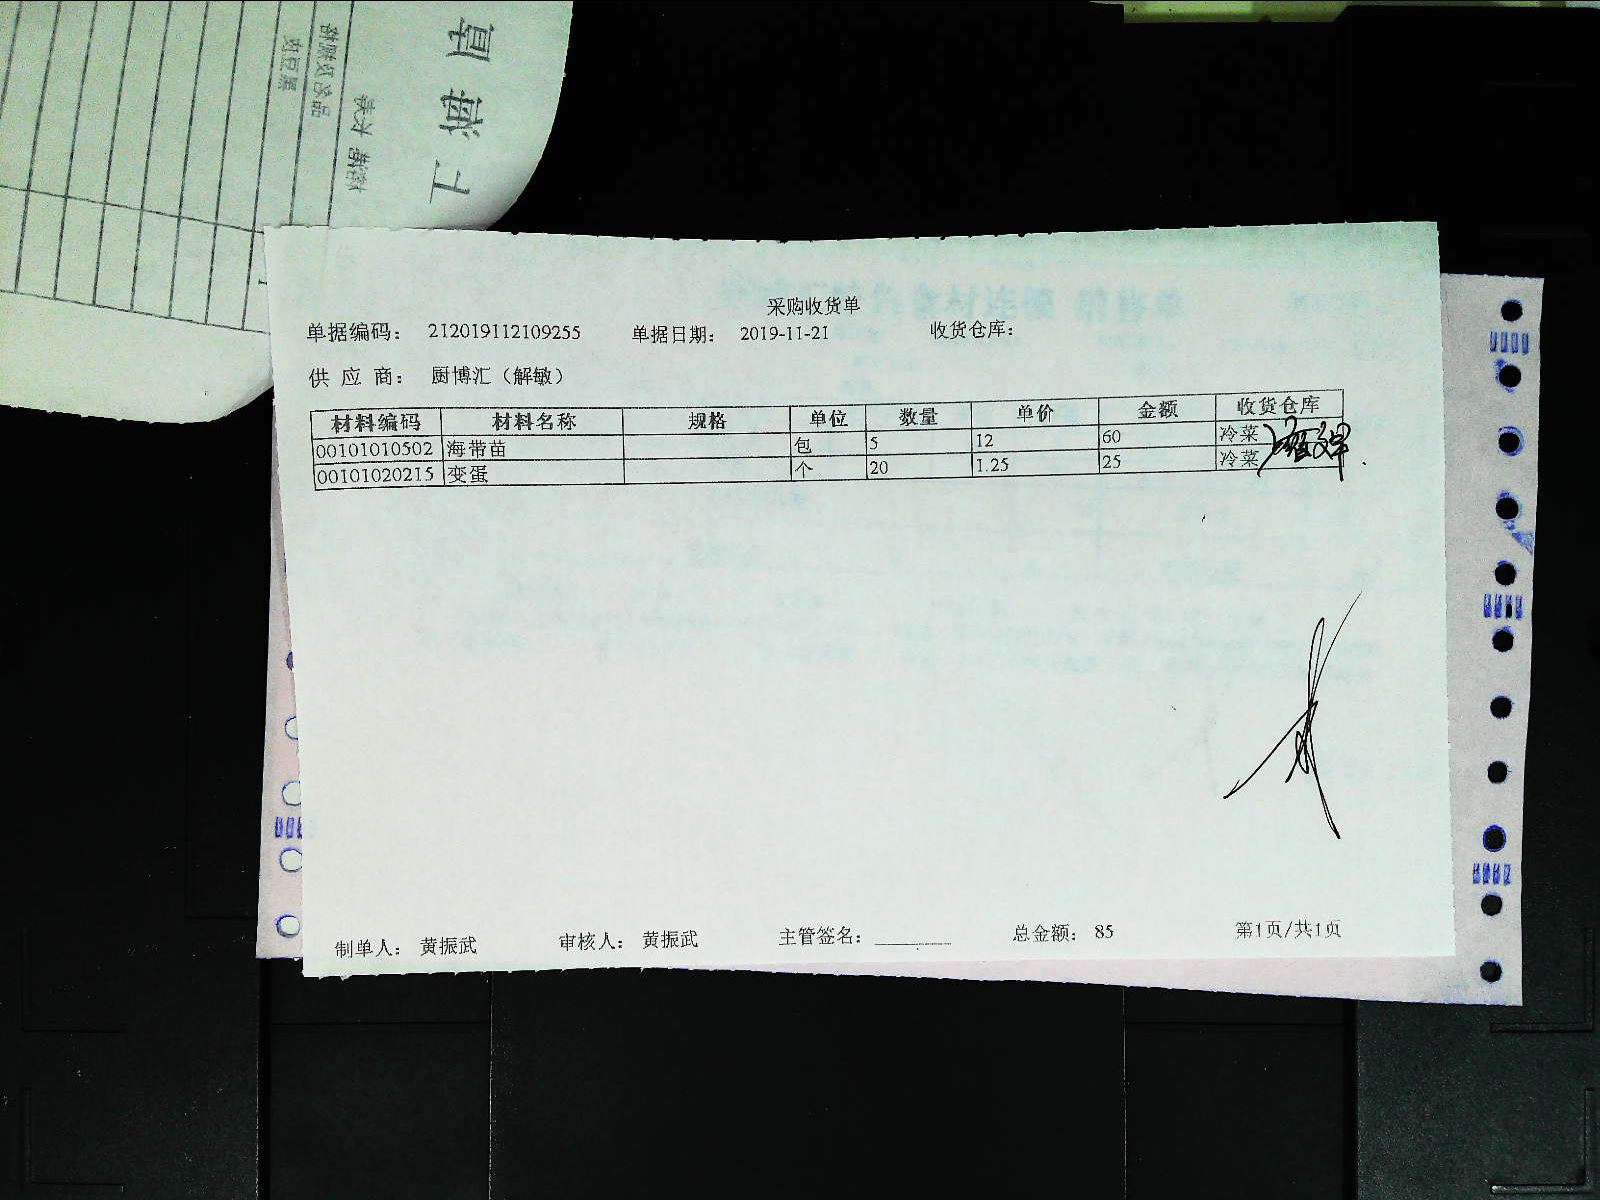 采购收货单
单据编码： 212019112109255 单据日期： 2019-11-21 收货仓库：
供 应 商： 厨博汇（解敏）
材料编码 材料名称 规格 单位 数量 单价 金额 收货仓库
00101010502 海带苗 包 5 12 60 冷菜
00101020215 变蛋 个 20 1.25 25 冷菜
制单人： 黄振武 审核人： 黄振武 主管签名： 总金额： 85 第1页/共1页